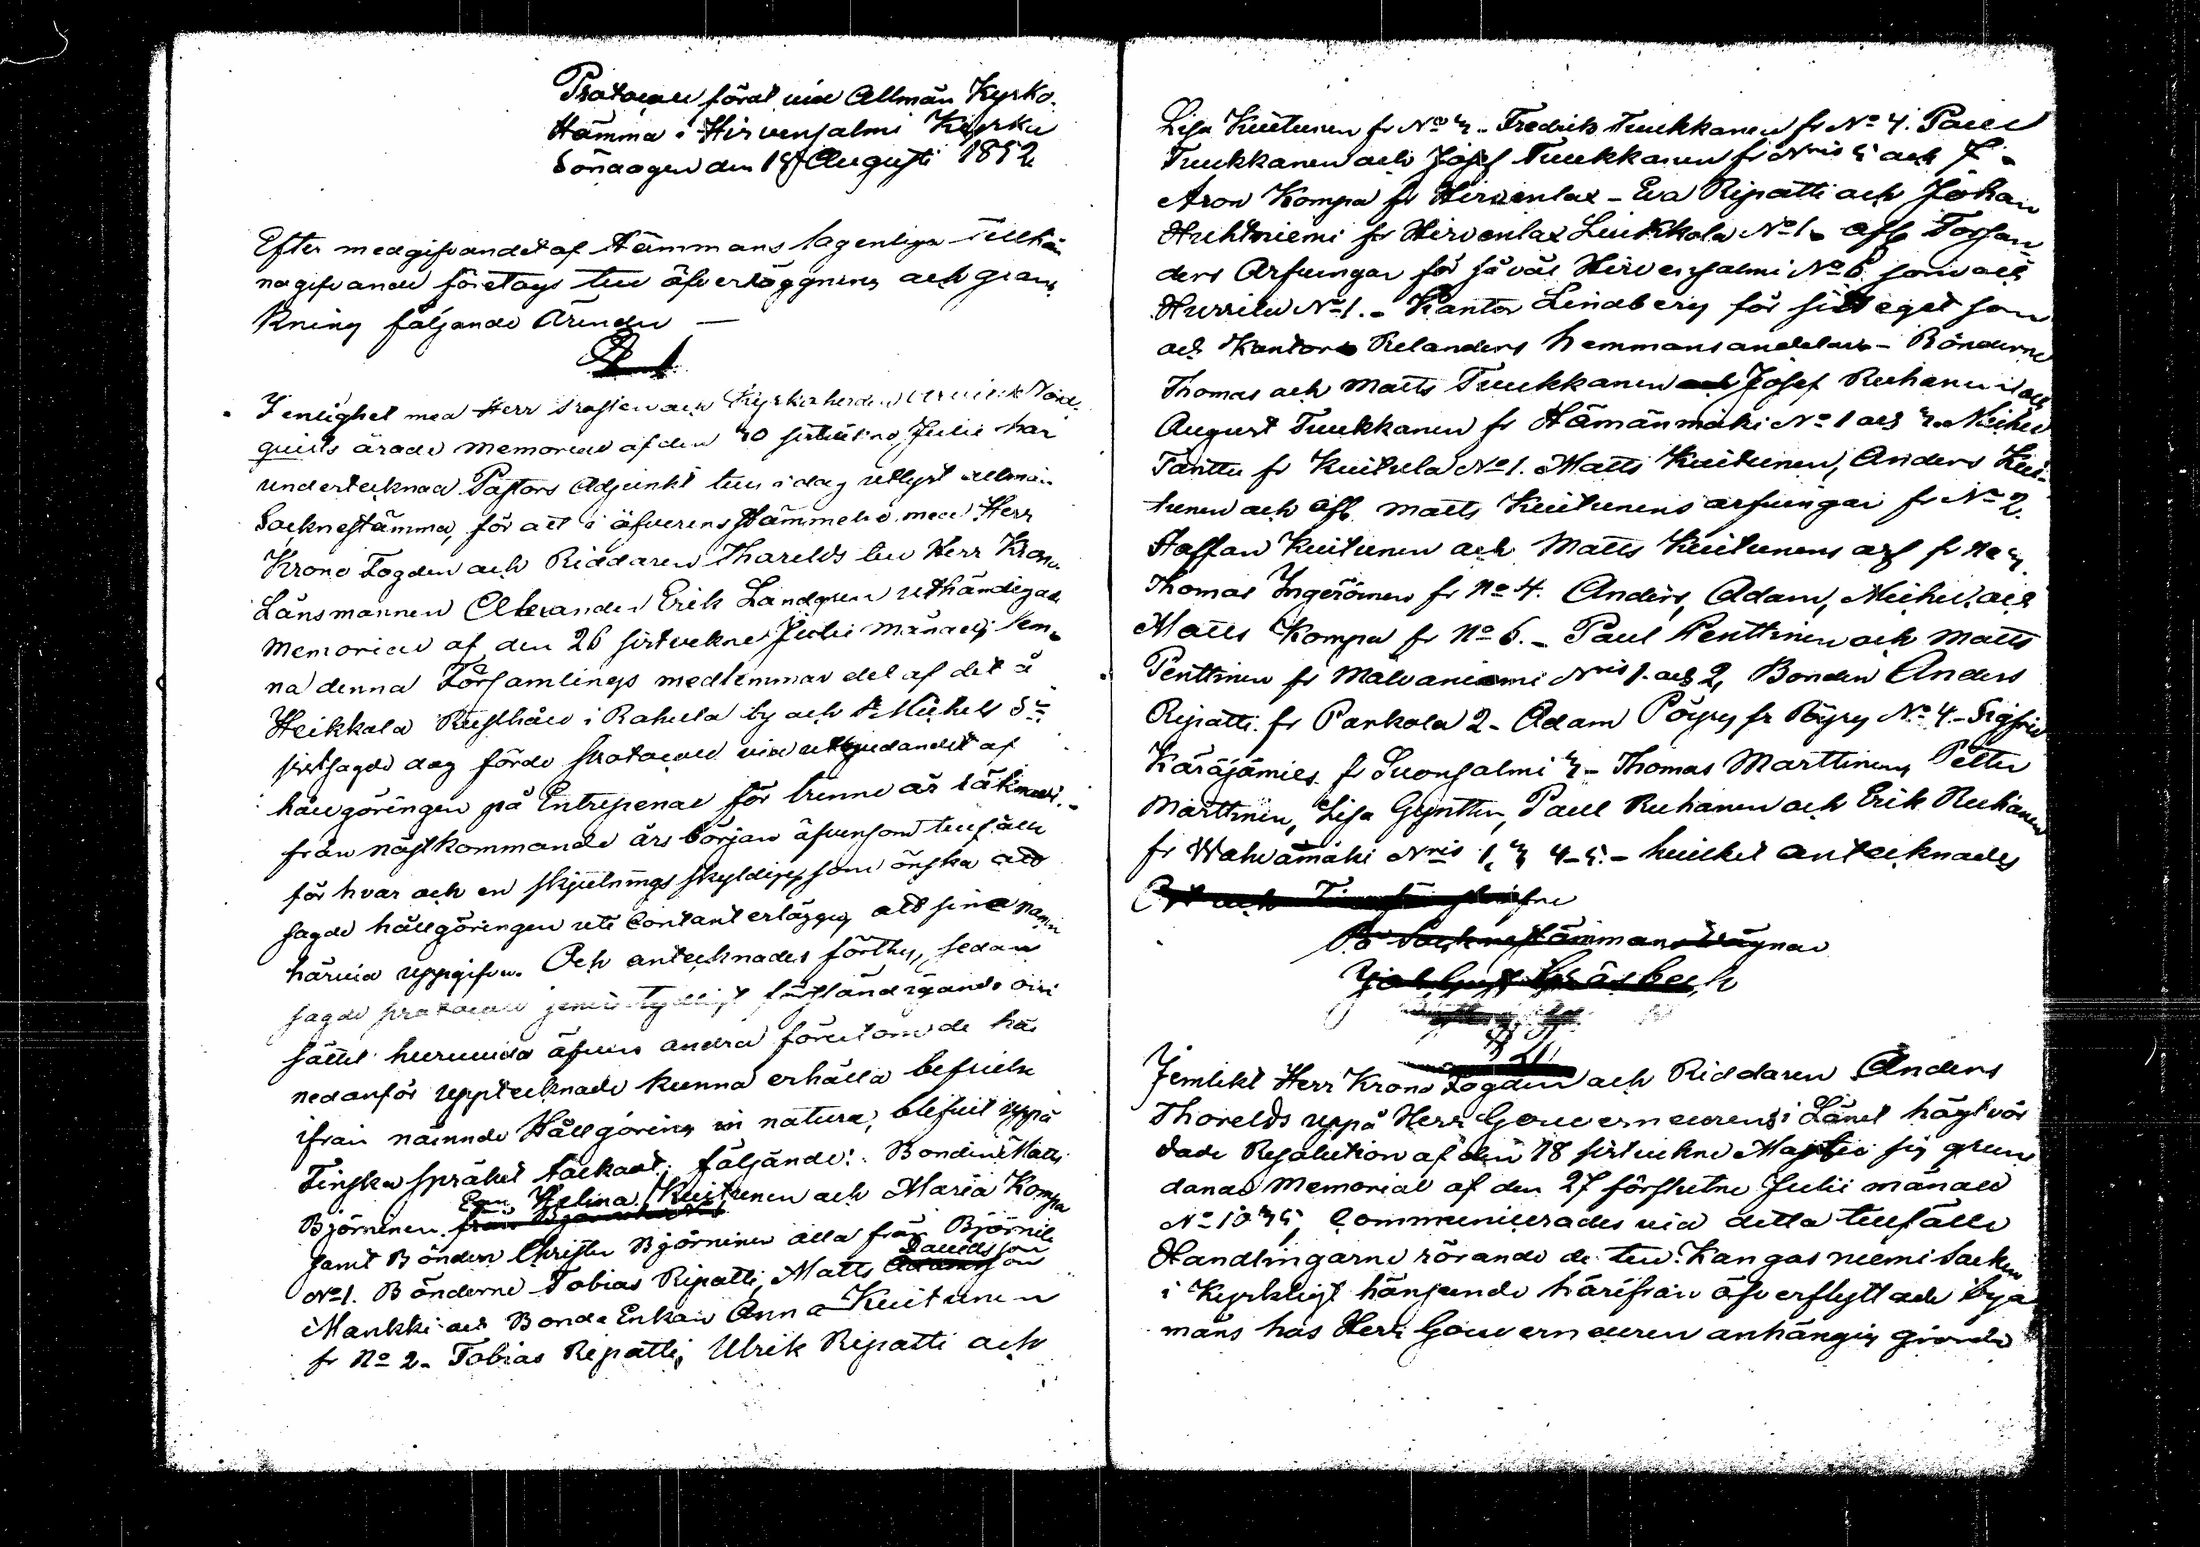 Protocoll fördt vid Allmän Kyrko-
stämma i Hirvensalmi Kyrka
Söndagen den 15 Augusti 1852
Efter medgifvandet af Stämmans lagenliga Tillkän
nagifvande företogs till öfverläggning och grans
kning följande Ärender —
§ 1
I enlighet med Herr Prosten och Kyrkoherden
quists ärade Memorial af den 30 sistvikne Julii har
undertecknad Pastors Adjunkt till i dag utlyst allmän
Socknestämma, för att i öfverensstämmelse med Herr
Krono Fogden och Riddaren Thorelds till Herr Krono
Länsmannen Alexander Erik Landgren uthändigade
Memorial af den 26 sistvekne Julii månad, lem-
na denna Församlings medlemmar del af det å
Heikkala Rusthåll i Rahula by och St Michels Sn
sistsagde dag förde protocoll vid utbjudandet af
hållgöringen på Entrepenad för trenne år räknadt
från nästkommande års början äfvensom tillfälle
för hvar och en skjutsningsskyldig, som önska att
sagde hållgöringen uti Contant erlägga, att sina namn
härvid uppgifva. Och antecknades förthy, sedan
sagde protocoll jemte tydligt förständigande om
sättet huruvida äfven andra förutom de här
nedanför upptecknade kunna erhålla befrielse
ifrån nämnde Hållgöring in natura, blifvit uppå
Finska språket tolkadt, följande: Bonden Matts
Björninen Enk. Helina Kuitunen och Maria Kompa
samt Bönden Christer Björninen alla från Björnilä
No 1. Bönderne Tobias Ripatti, Matts Davidsson
Mankki och Bonde Enkan Anna Kuitunen
fr No 2. Tobias Ripatti, Ulrik Ripatti och
Lisa Kuitunen fr No 3. Fredrik Tuukkanen fr No 4. Paul
Tuukkanen och Josef Tuukkanen fr Nris 5 och 7.
Aron Kompa fr Hirvenlax - Eva Ripatti och Johan
Huhtniemi fr Hirvenlax Leikkola No 1. afl.
ders Arfvingar för såväl Hirvensalmi No 6 som och
Hurrila No 1. - Kantor Lindberg för sitt eget som
och Kantor Relanders hemmansandelar - Bönderne
Thomas och Matts Tuukkanen Josef Ruhanen och
August Tuukkanen fr Hämänmäki No 1 och 3. Michel
Tanttu fr Kuitula No 1. Matts Kuitunen, Anders Kui-
tunen och afl. Matts Kuitunens arfvingar fr No 2.
Staffan Kuitunen och Matts Kuitunens arf fr No 3.
Thomas Ingeröinen fr No 4. Anders, Adam, Michel och
Matts Kompa fr No 6. - Paul Penttinen och Matts
Penttinen fr Malvaniemi Nris 1 och 2, Bonden Anders
Ripatti fr Pankola 2 - Adam Pöyry fr Pöyry No 4 - Sigfrid
Käräjämies fr Suonsalmi 3 - Thomas Marttinen, Petter
Marttinen, Lisa Gynther, Paul Ruhanen och Erik Ruhanen
fr Wahvamäki Nris 1, 3, 4-5. - hvilket antecknades
På Socknestämmans vägnar
Jemlikt Herr Krono Fogden och Riddaren Anders
Thorelds uppå Herr Gouverneurens i Länet högtvör
dade Resolution af den 18 sistvikne Maji sig grun
dande Memorial af den 27 förflutne Julii månad
No 1035, Communicerades vid detta tillfälle
Handlingarne rörande de till Kangasniemi Socken
i Kyrkligt hänseende härifrån öfverflyttade bya
mäns hos Herr Gouverneuren anhängig gjorde